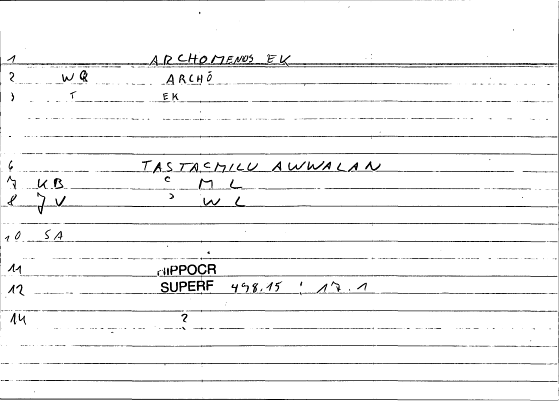 1 ARCHOMENOS EK
2 WQ ARCHŌ
3 T EK
6 TASTACMILU AWWALAN
7 KB c M L
8 JV ɔ W L
10 SA
11 HIPPOCR
12 SUPERF 498.15 ; 17.1
14 ?